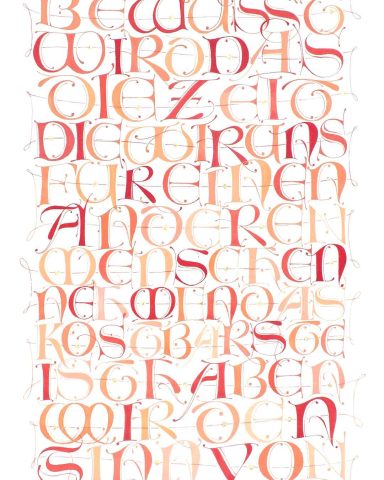 BEWUSST
WIRD DAS
DIE ZEIT
DIE WIR UNS
FUR EINEN
ANDEREN
MENSCHEN
NEHMEN DAS
KOSTBARSTE
IST HABEN
WIR DEN
SINN VON